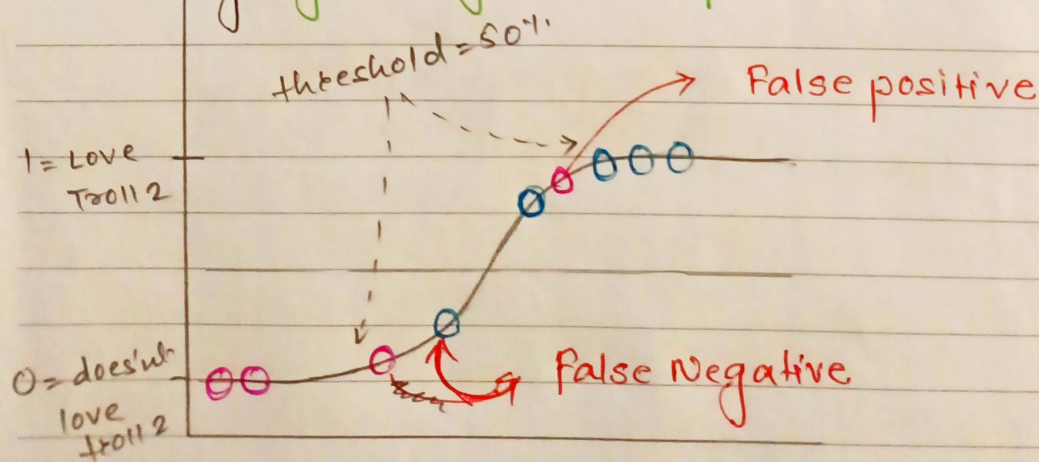 threshold = 50%
False positive
1 = Love
Troll 2
0 = does'nt
love
troll 2
False Negative